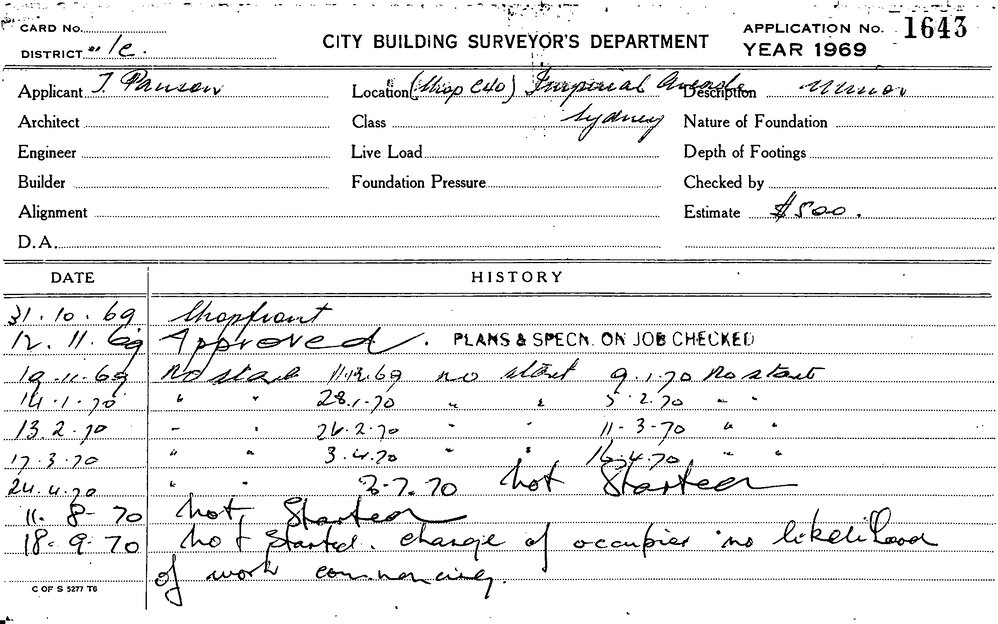 CARD No.
DISTRICT 1c.
CITY BUILDING SURVEYOR'S DEPARTMENT
APPLICATION No. 1643
YEAR 1969
Applicant J. Location (Shop C40) Imperial Arcade Description Minor
Architect Class Sydney Nature of Foundation
Engineer Live Load Depth of Footings
Builder Foundation Pressure Checked by
Alignment Estimate $500.
D.A.
DATE HISTORY
31.10.69 Shopfront
12.11.69 Approved. PLANS & SPECN. ON JOB CHECKED
19.11.69 No start 11.12.69 no start 9.1.70 No start
14.1.70 " " 28.1.70 " " 5.2.70 " "
13.2.70 " " 26.2.70 " " 11-3-70 " "
17.3.70 " " 3.4.70 " " 16.4.70 " "
24.4.70 " " 3-7.70 not Started
11.8-70 not Started
18-9.70 not Started. change of occupier no likelihood
of work commencing.
C OF S 5277 T6